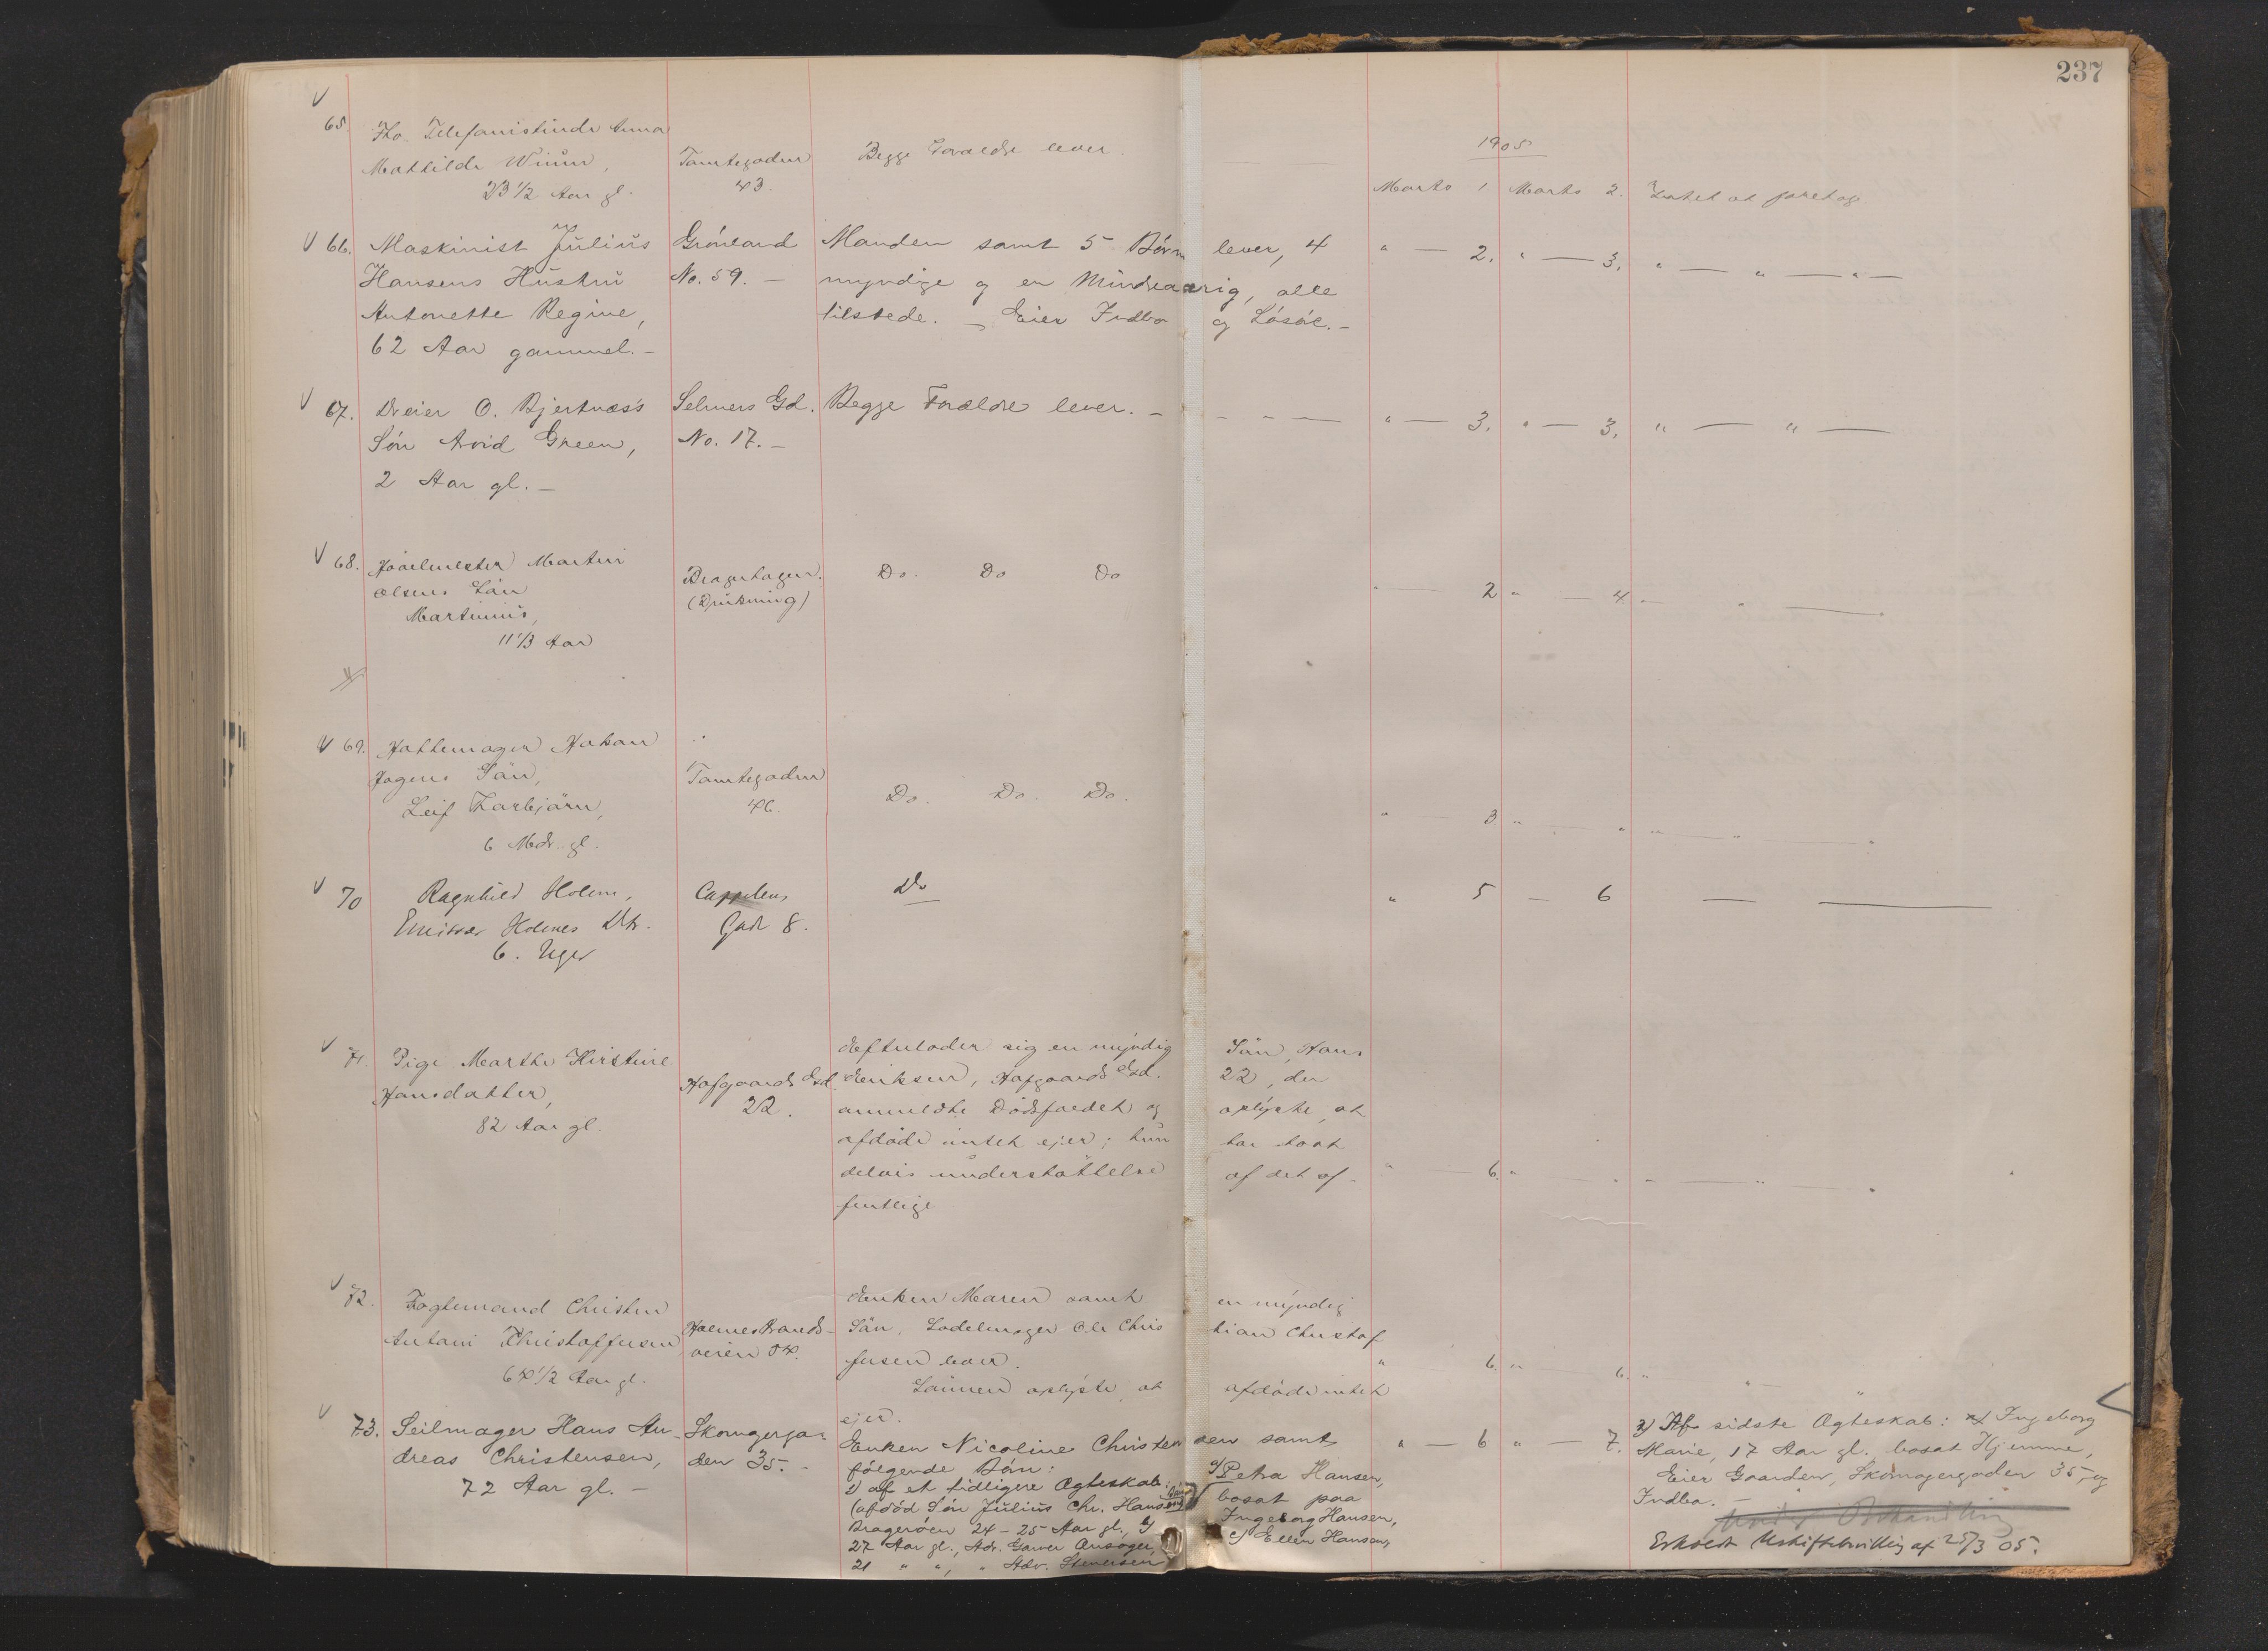 237
1905
65. Frk. Telefonistinde Anna
Mathilde Wiium,
23 1/2 Aar gl.
Tomtegaden
43.
Begge Forældre lever.
Marts 1 Marts 2. Intet at foretage
66. Maskinist Julius
Hansens Hustru
Antonette Regine,
62 Aar gammel. –
Grönland
No. 59. –
Manden samt 5 Börn lever, 4
myndige og en Mindreaarig, alle
tilstede. – Eier Indbo og Lösöre. –
" — 2. " — 3. " — " — " —
67. Dreier O. Bjertnæs's
Sön Arvid Green,
2 Aar gl. –
Selmers Gd.
No. 17. –
Begge Forældre lever. – – – —
" — 3. " — 3. " — " —
68. Martin
Olsens Sön
Martinius,
11 1/3 Aar
Bragerhagen.
(Drukning)
Do. Do Do
" — 2 " — 4. " — " —
69. Hattemager Hakon
Sön,
Leif Thorbjörn,
6 Mdr. gl.
Tomtegaden
46.
Do. Do. Do.
" 3 " — " " — " — "
70 Ragnhild Holm,
Emissær Holmes Dtr.
6. Uger
Cappelens
Gade 8.
Do
" 5 — 6 — —
71. Pige Marthe Kirstine
Hansdatter,
82 Aar gl.
Hofgaards Gd
22.
Efterlader sig en myndig Sön, Hans
Eriksen, Hofgaards Gd. 22, der
anmeldte Dödsfaldet og oplyste, at
afdöde intet ejer; hun har havt
delvis understöttelse af det of-
fentlige
" — 6. " — " " — " — "
72. Fogtemand Christen
Antoni Christoffersen
64 1/2 Aar gl.
Holmestrands-
veien 54.
Enken Maren samt en myndig
Sön, Sadelmager Ole Chris tian Christof
fersen lever.
Sönnen oplyste, at afdöde intet
ejer.
" 6. " 6. " " "
73. Seilmager Hans An-
dreas Christensen,
72 Aar gl. –
Skomagerga-
den 35. –
Enken Nicoline Christensen samt
fölgende Börn:
1) af et tidligere Ægteskab:
(afdöd Sön Julius Chr. Hansens
a) Petra Hansen,
bosat paa
Bragerøen 24 – 25 Aar gl., b) Ingeborg Hansen,
27 Aar gl., Adr. Garver Ansager, c) Ellen Hansen,
21 " ", " Adr. Stenersen
" — 6 " — 7.
2) Af sidste Ægteskab: Ingeborg
Marie, 17 Aar gl. bosat Hjemme,
Eier Gaarden, Skomagergaden 35, og
Indbo. –
Under Behandling
Erholdt Uskiftebevilling af 25/3 05.